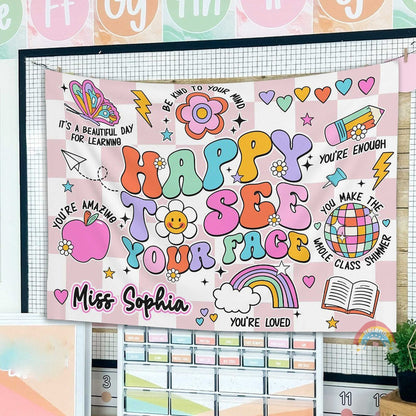 Ff Gg Hh
BE KIND TO YOUR MIND
IT'S A BEAUTIFUL DAY
FOR LEARNING
YOU'RE ENOUGH
HAPPY
TO SEE
YOUR FACE
YOU'RE AMAZING
YOU MAKE THE
WHOLE CLASS SHIMMER
Miss Sophia
YOU'RE LOVED
3
11